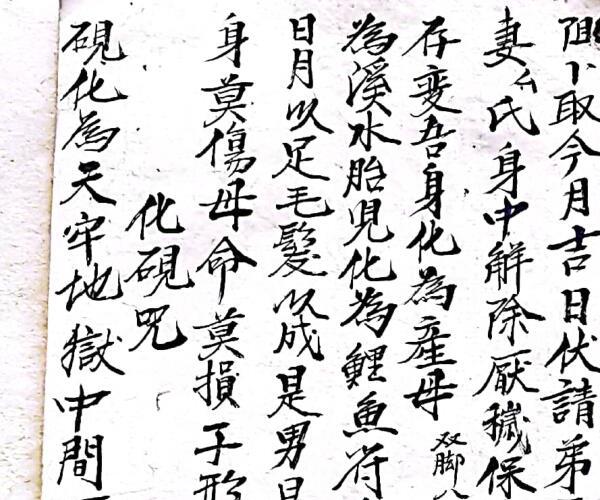 卜取今月吉日伏請弟
妻厶氏身中解除厭穢保
存變吾身化為產母双脚
為溪水胎児化為鯉魚符
日月以足毛髮以成是男是
身莫傷母命莫損子形
化硯咒
硯化為天牢地獄中間